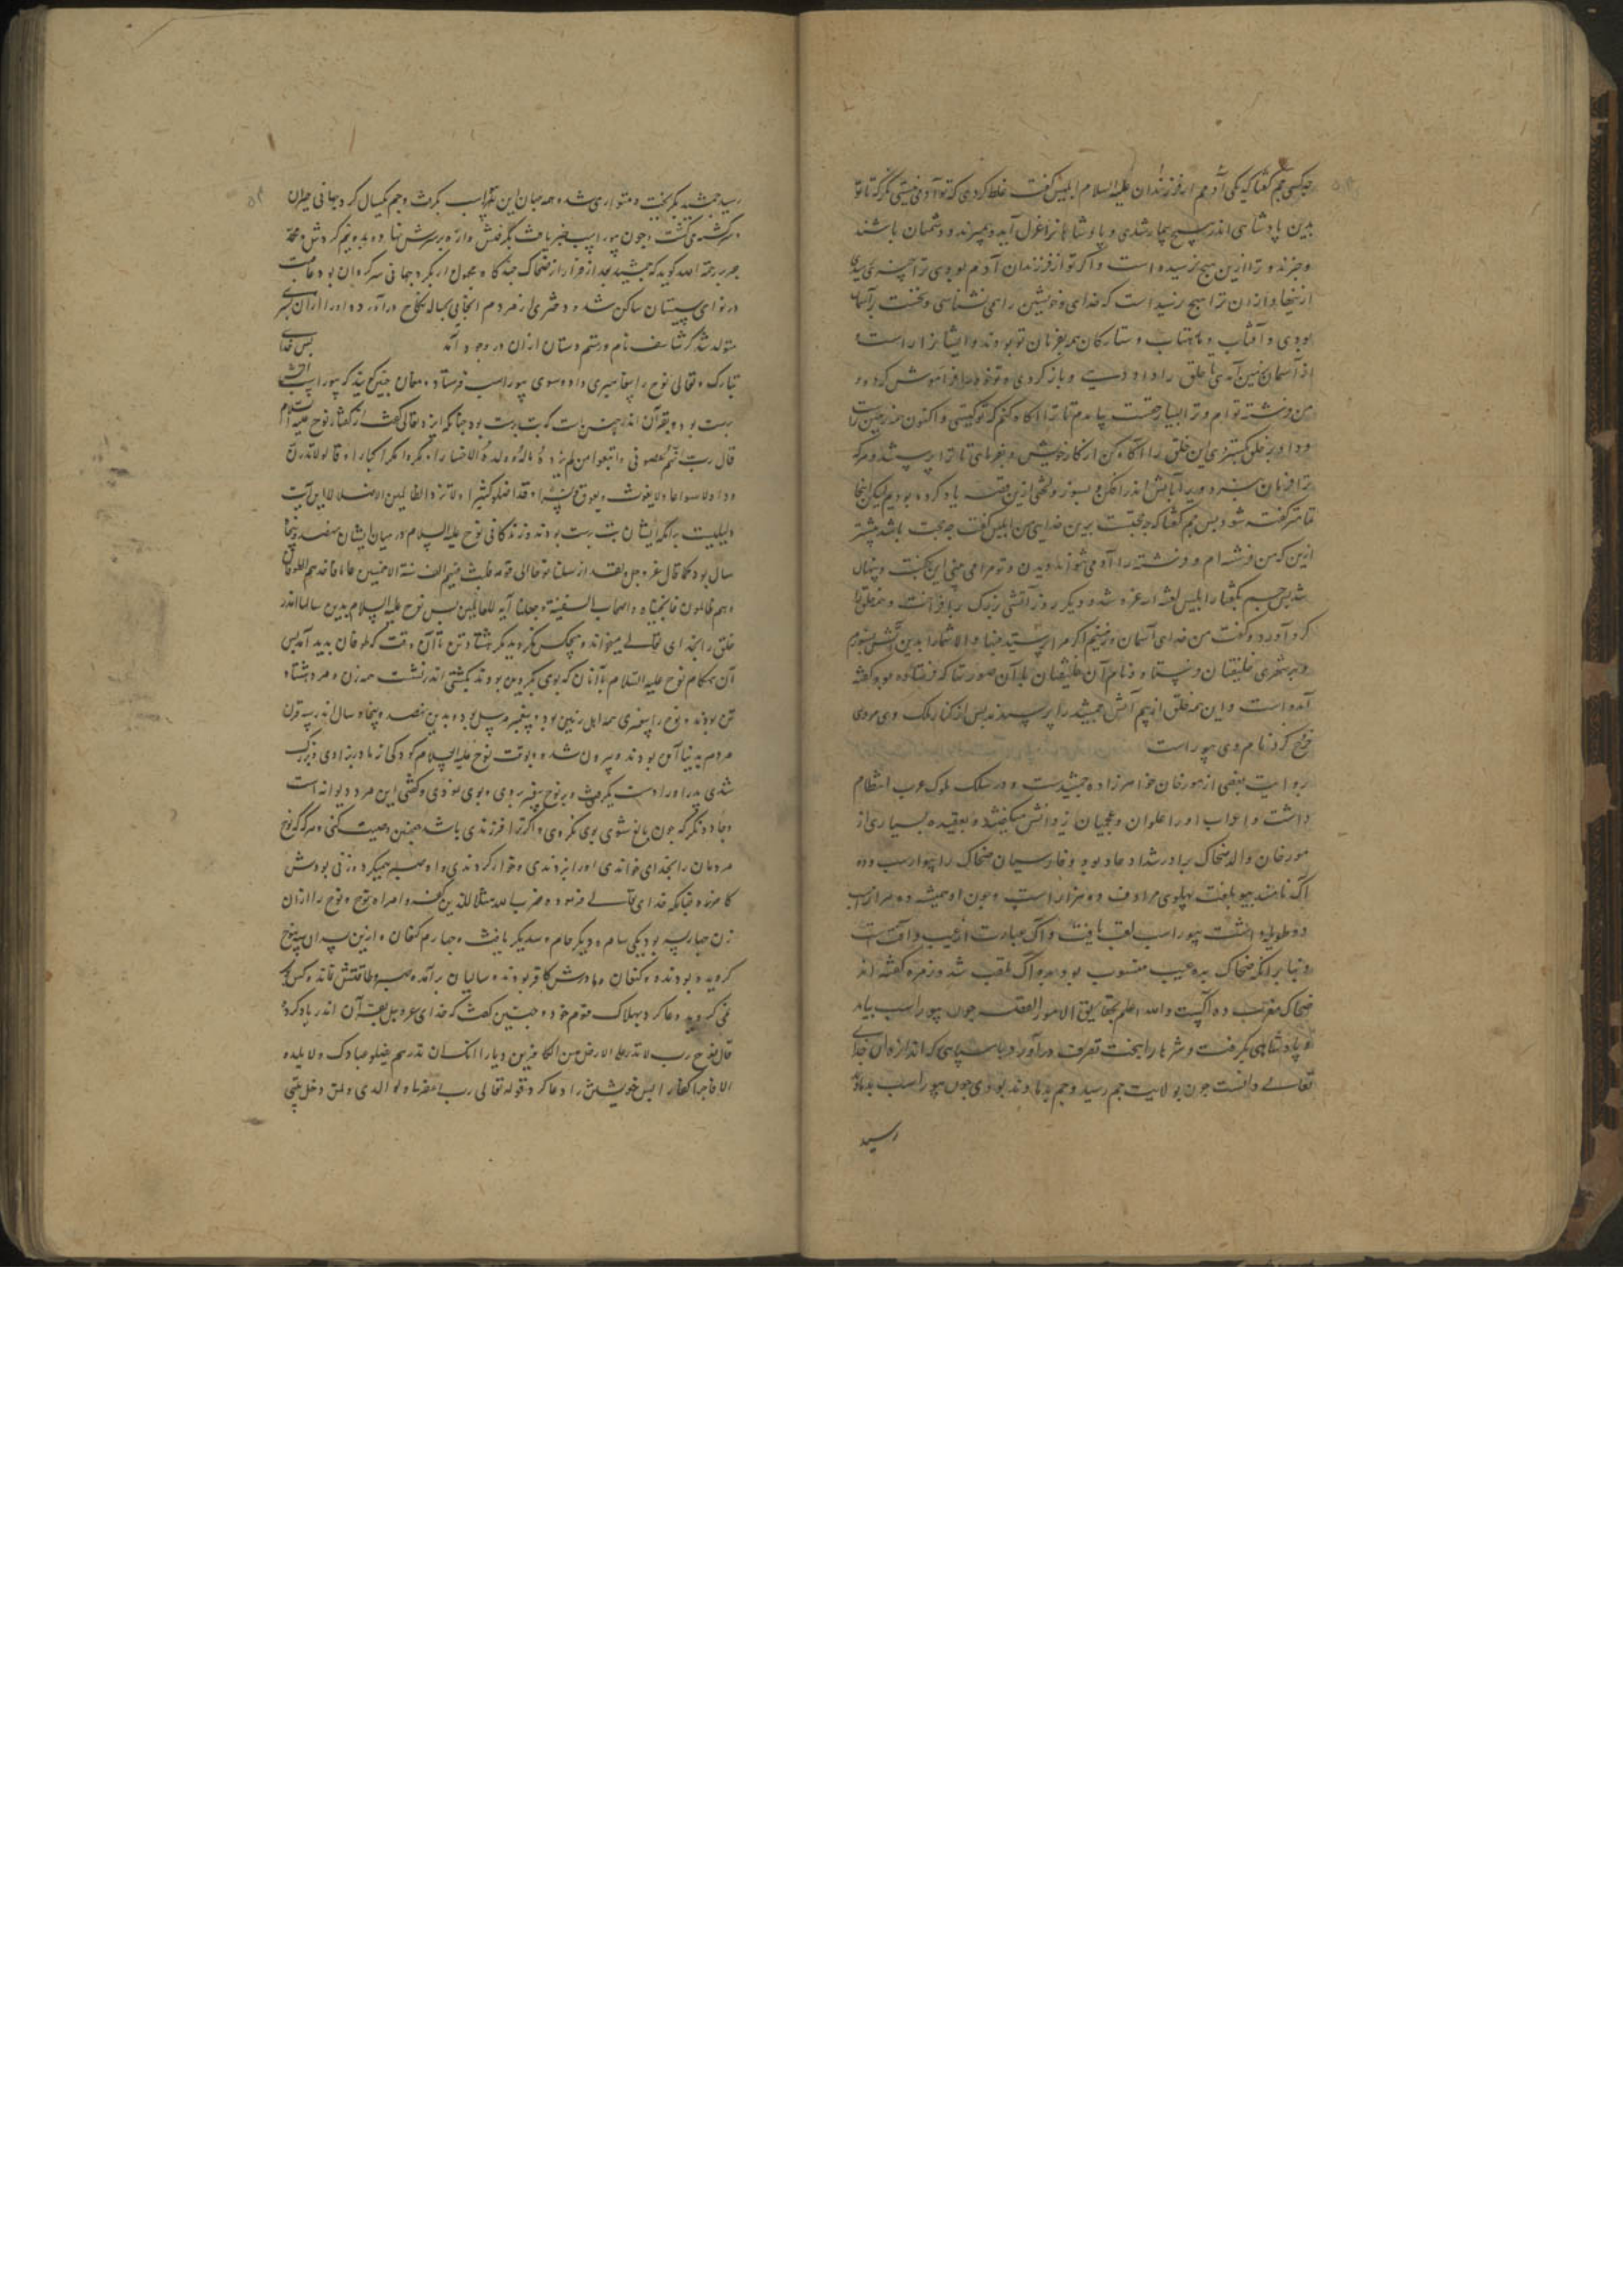 چه کسی جم گفتا که یکی آدمیم از فرزندان علیه السلام ابلیس گفت غلط کردی که تو آدمی نیستی بنگر که تا تو
بدین پادشاهی اندر هیچ بیمار شدی و پادشاهانرا غول آید و بمیرند و دشمنان باشند
و ترا ازین هیچ نرسیده است و اگر تو از فرزندان آدم بودی ترا
ازینها و ازان ترا هیچ نرسید است که خدای خویشتن را همی نشناسی و نخست بر آسمان
بودی و آفتاب و ماهتاب و ستارکان همه بفرمان تو بودند و ایشانرا
از آسمان بزمین آمدی تا خلق را داد دهی و باز کردی و تو خود را فراموش کردی و
من فرشته توام و ترا بسیار حقست پیامدم تا ترا آگاه کنم که تو کیستی و اکنون
این خلق را آگاه کن از کار خویش و بفرمای تا ترا پرستند و هر که
ترا فرمان نبرد ویرا بآتش اندر افکن و بسوز و لختی ازین قصه یاد کرده بودیم لیکن اینجا
تمامتر گفته شود پس جم گفتا که چه حجتست برین خدایی من ابلیس گفت چه حجت باشد بیشتر
ازین که من فرشته ام و فرشته را آدمی نتواند دیدن و تو مرا می بینی این بگفت و پنهان
شد پس جم بگفتار ابلیس لعنه الله غره شد و دیگر روز آتشی بزرگ برافروخت و همه خلق را
کرد آورد و گفت من خدای آسمان و زمینم اگر مرا پرستید و الا شما را بدین آتش بسوزم
و بهر شهری خلیفتان فرستاد و نام آن خلیفتان بدان صورتها که فرستاده بود گفته
آمده است و این همه خلق از بیم آتش جمشید را پرستیدند پس از کنار ملک وی مردی
خروج کرد نام وی بیوراسب
بروایت بعضی از مورخان خواهرزاده جمشیدست و در سلک ملوک عرب انتظام
داشت و اعراب او را علوان و عجمیان از دانش میگفتند و بعقیده بسیاری از
مورخان والد ضحاک برادر شداد عاد بود و فارسیان ضحاک را بیوراسب و ده
آک نامند بیور بلغت پهلوی مرادف ده هزار است و چون او همیشه ده هزار اسب
در طویله داشت بیوراسب لقب یافت و آک عبارت از عیب و آفتست
و بنا بر آنکه ضحاک بده عیب منسوب بود بده آک ملقب شد و زمره گفته اند
ضحاک معرب ده آکست و الله اعلم بحقایق الامور القصه چون بیوراسب بیامد
و پادشاهی بگرفت و شهرها را بتحت تصرف درآورد و با سپاهی که اندازه آن خدای
تعالی دانست چون بولایت جم رسید و جم بدماوند بودی چون بیوراسب بدماوند
رسید
رسید جمشید بگریخت و متواری شد و همه جهان این بیوراسب بگرفت و جم یکسال کرد جهانی حیران
و سرگشته میگشت و چون بیوراسب خبر یافت بگرفتش و اره بر سرش نهاد و بدو نیم کردش و محمد
جریر رحمة الله گوید که جمشید بعد از فرار از ضحاک صد گاه مجهول وار بگرد جهانی سرگردان بود و عاقبت
در نواحی سیستان ساکن شد و دختری از مردم آنجایی بحباله نکاح درآورد و او را ازان پسری
متولد شد گرشاسف نام و رستم دستان ازان در وجود آمد پس خدای
تبارک و تعالی نوح را پیغامبری داد و سوی بیوراسب فرستاد و مغان چنین گویند که بیوراسب آتش
پرست بود و بقرآن اندر چنین است که بت پرست بود چنانکه ایزد تعالی گفت از گفتار نوح علیه السلام
قال رب انهم عصونی و اتبعوا من لم یزده ماله و ولده الا خسارا و مکروا مکرا کبارا و قالوا لا تذرن
ودا و لا سواعا و لا یغوث و یعوق و نسرا و قد اضلوا کثیرا و لا تزد الظالمین الا ضلالا این آیت
دلیلیست بر آنکه ایشان بت پرست بودند و زندگانی نوح علیه السلام در میان ایشان نهصد و پنجاه
سال بود کما قال عز و جل و لقد ارسلنا نوحا الی قومه فلبث فیهم الف سنة الا خمسین عاما فاخذهم الطوفان
و هم ظالمون فانجیناه و اصحاب السفینة و جعلناها آیه للعالمین پس نوح علیه السلام بدین سالها اندر
خلق را بخدای تعالی میخواند و هیچکس نگروید مگر هشتاد تن تا آن وقت که طوفان پدید آمد پس
آن هنگام نوح علیه السلام با آنان که بوی گرویده بودند بکشتی اندر نشست همه زن و مرد هشتاد
تن بودند و نوح را پیغمبری همه اهل زمین بود و پیغمبر مرسل بود و بدین نهصد و پنجاه سال اندر سه قرن
مردم بدنیا آمده بودند و بیرون شده و بوقت نوح علیه السلام کودکی از مادر بزادی و بزرگ
شدی پدر او را دست بگرفتی و بر نوح پیغمبر بردی و بوی نمودی و گفتی این مرد دیوانه است
و جادو نگر که چون بالغ شوی بوی نگروی و اگر ترا فرزندی باشد همچنین وصیت کنی و هر گه که نوح
مردمان را بخدای خواندی او را بزدندی و خوار کردندی و او صبر همیکرد و زنی بودش
کافره چنانکه خدای تعالی فرمود و ضرب الله مثلا للذین کفروا امراة نوح و نوح را ازان
زن چهار پسر بود یکی سام و دیگر حام و سدیگر یافث و چهارم کنعان و ازین پسران سه بنوح
گرویده بودند و کنعان و مادرش کافر بودند و سالیان برآمد و صبر و طاقتش نماند و کس
نمی گروید و دعا کرد بهلاک قوم خود و چنین گفت که خدای عز و جل بقرآن اندر یاد کرد
قال نوح رب لا تذر علی الارض من الکافرین دیارا انک ان تذرهم یضلوا عبادک و لا یلدوا
الا فاجرا کفارا پس خویشتن را دعا کرد قوله تعالی رب اغفرلی و لوالدی و لمن دخل بیتی